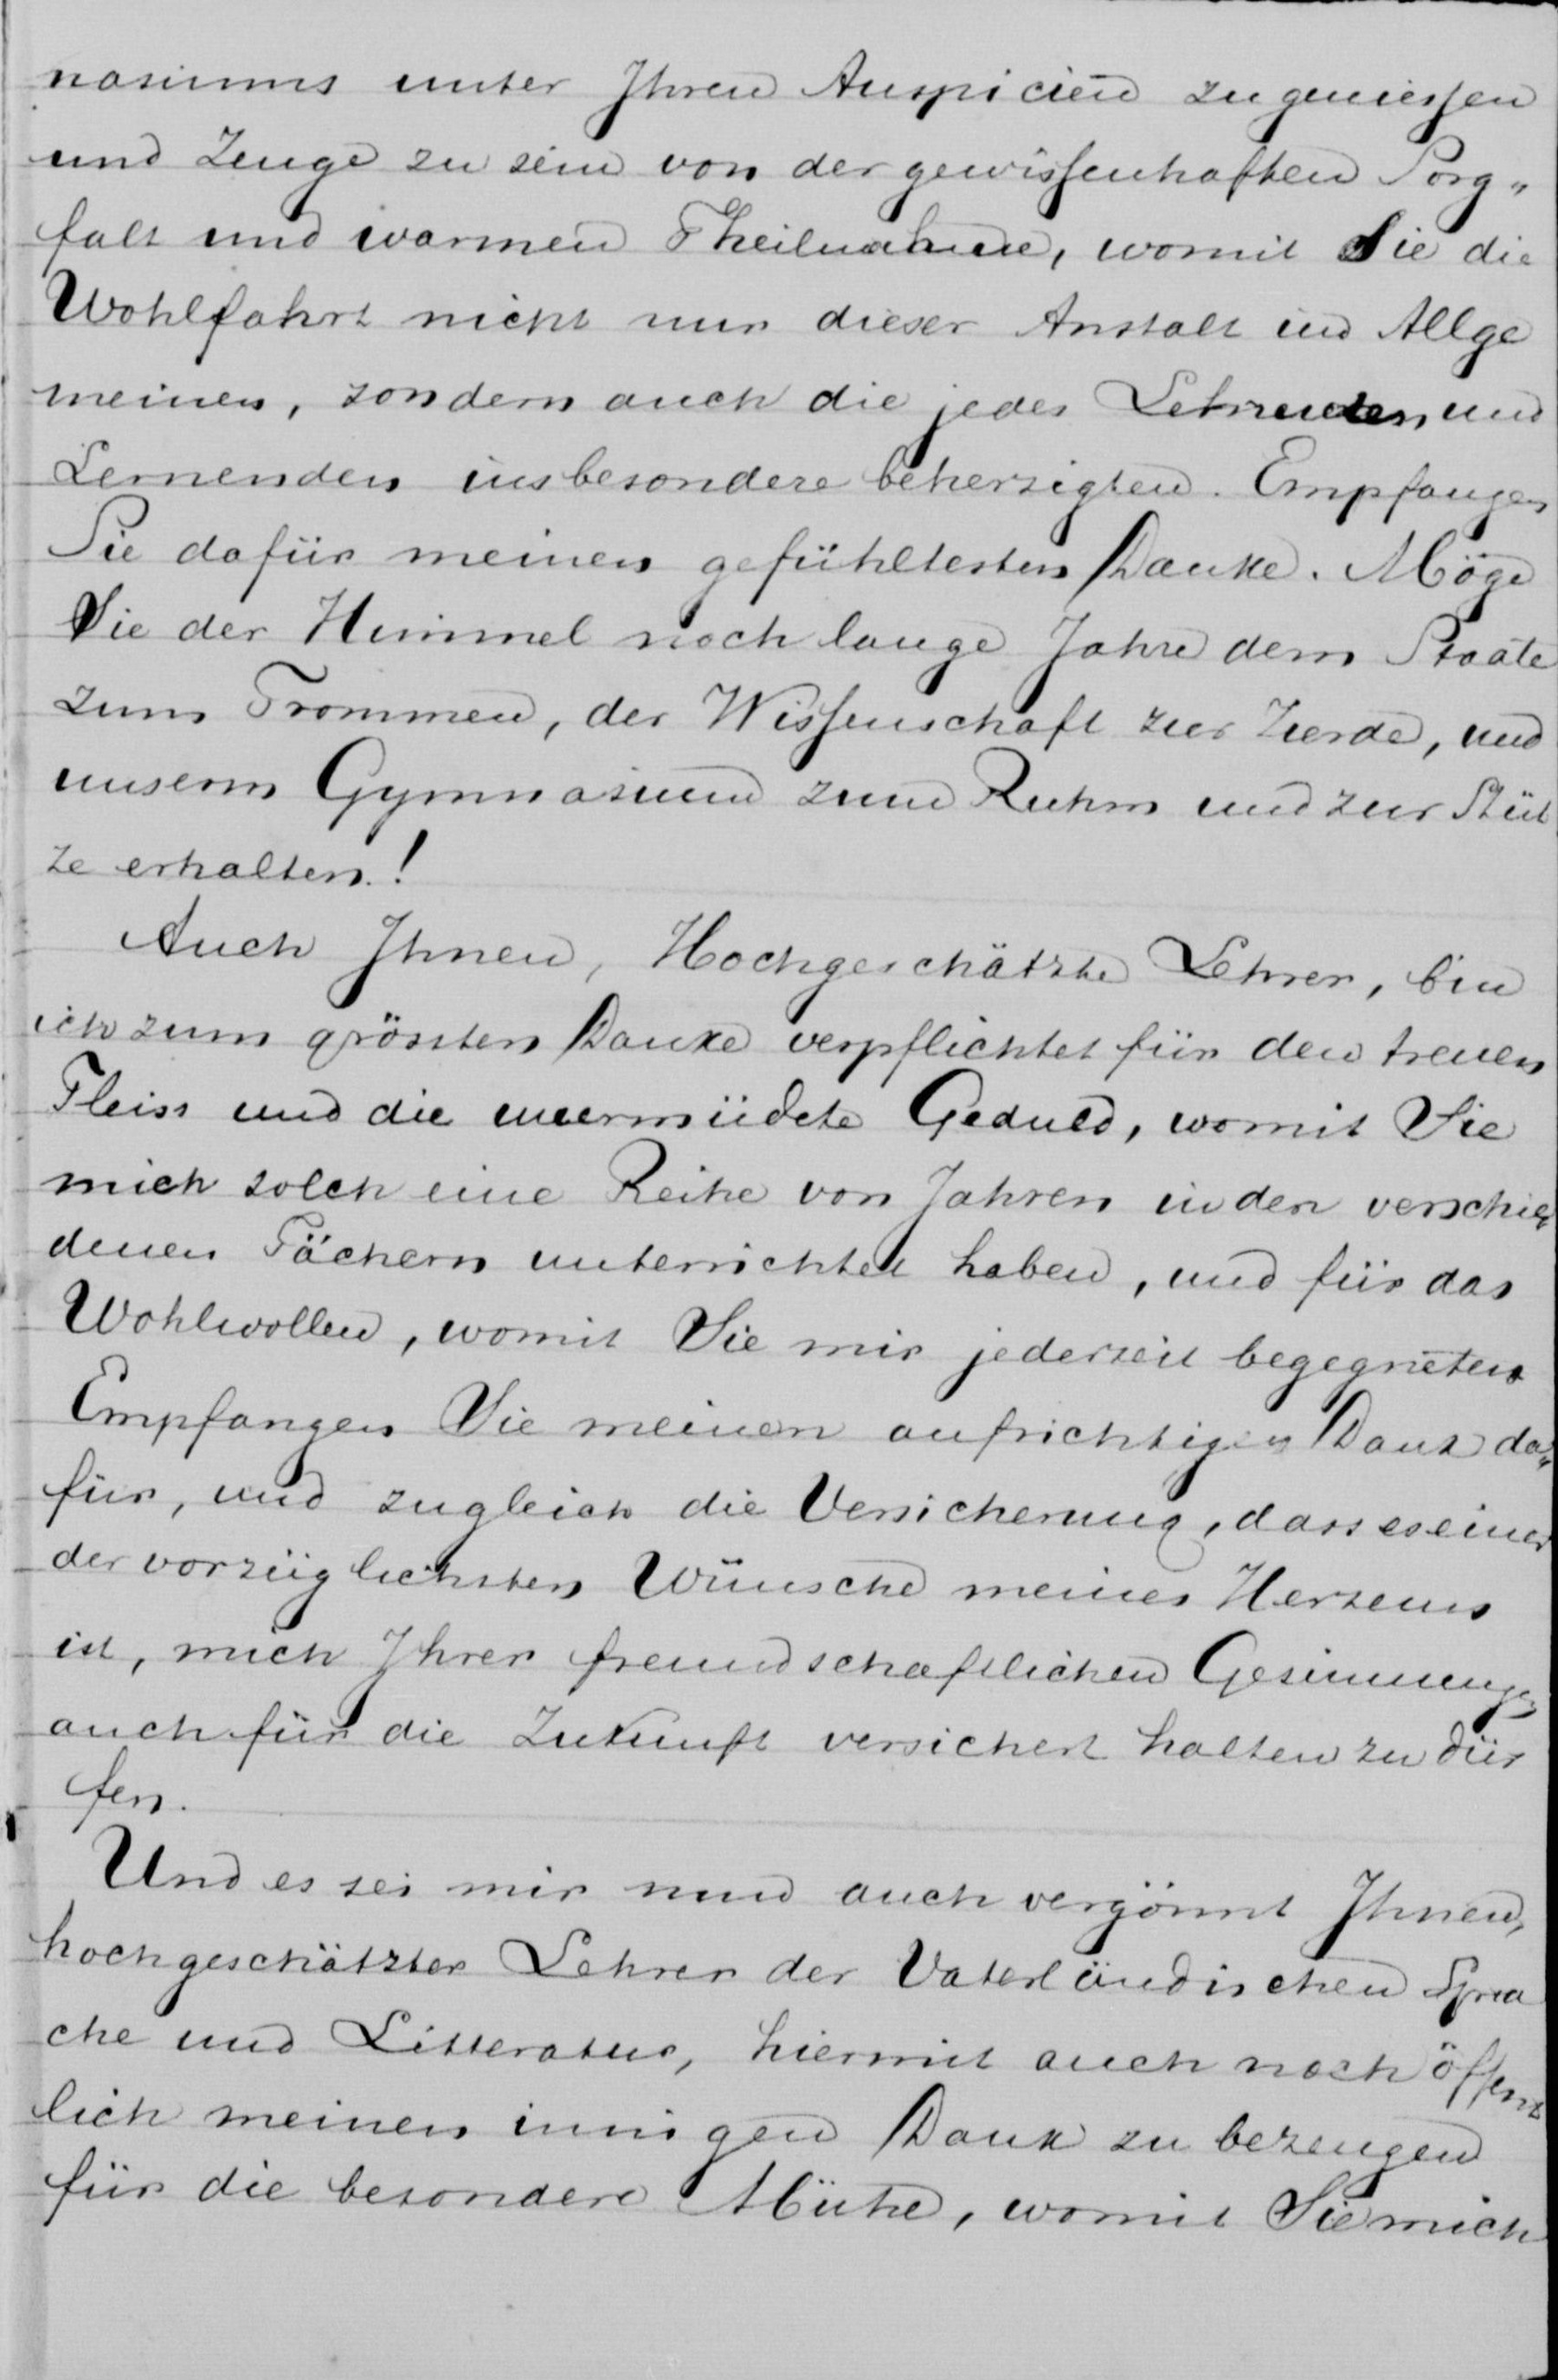 nasiums unter Ihren Auspicien zu geniessen
und Zeuge zu sein von der gewissenhaften Sorg„
falt und warmen Theilnahme, womit Sie die
Wohlfahrt nicht nur dieser Anstalt im Allge
meinen, sondern auch die jedes Lehrenden und
Lernenden insbesondere beherzigten. Empfangen
Sie dafür meinen gefühltesten Danke. Möge
Sie der Himmel noch lange Jahre dem Staate
zum Frommen, der Wissenschaft zur Zierde, und
unserm Gymnasium zum Ruhm und zur Stüt
ze erhalten!
Auch Ihnen, Hochgeschätzte Lehrer, bin
ich zum grössten Danke verpflichtet für den treuen
Fleiss und die unermüdete Geduld, womit Sie
mich solch eine Reihe von Jahren in den verschie„
denen Fächern unterrichtet haben, und für das
Wohlwollen, womit Sie mir jederzeit begegneten
Empfangen Sie meinen aufrichtigen Dank da„
für, und zugleich die Versicherung, dass es einer
der vorzüglichsten Wünsche meines Herzens
ist, mich Ihrer freundschaftlichen Gesinnungen
auch für die Zukunft versichert halten zu dür
fen.
Und es sei mir nun auch vergönnt Ihnen,
hochgeschätzter Lehrer der Vaterländischen Spra
che und Litteratur, hiermit auch noch öffent
lich meinen innigen Dank zu bezeugen
für die besondere Mühe, womit Sie mich